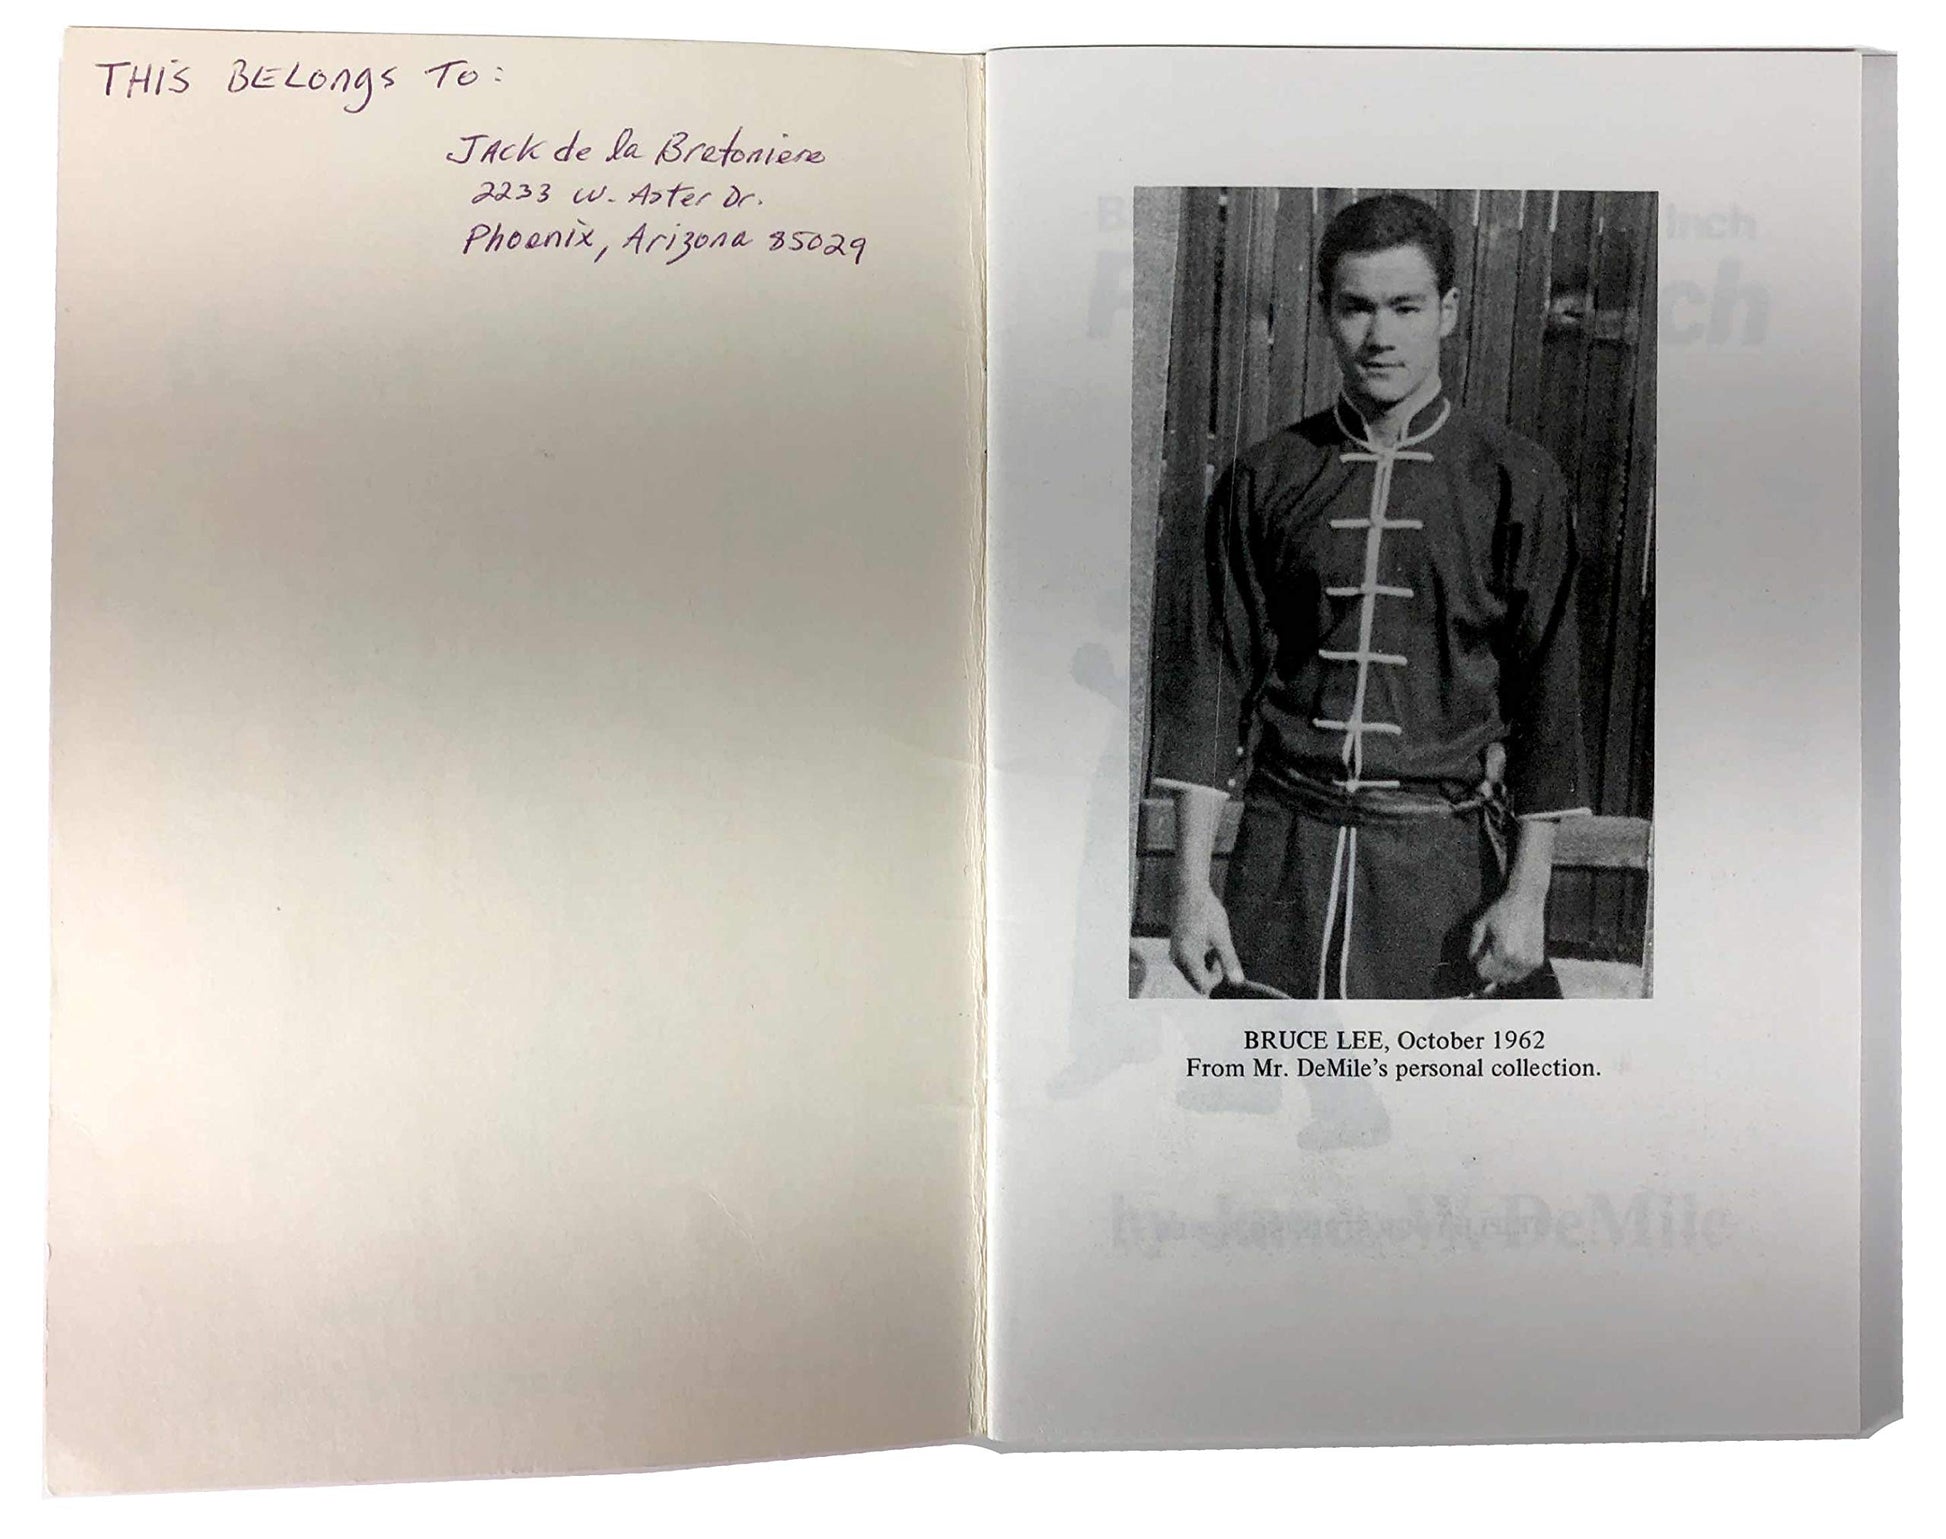 THIS BELongs To:
JAck de la Bretoniere
2233 W. Aster Dr.
Phoenix, Arizona 85029
Inch
ch
BRUCE LEE, October 1962
From Mr. DeMile's personal collection.
by James W. DeMile